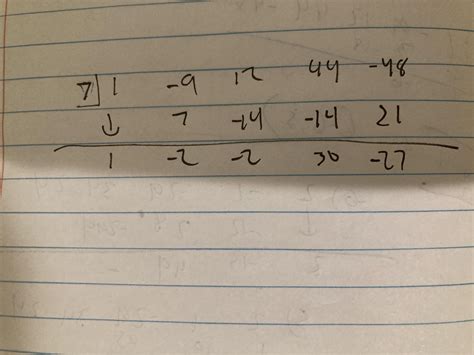 7 1 -9 12 44 -48
↓ 7 -14 -14 21
1 -2 -2 30 -27